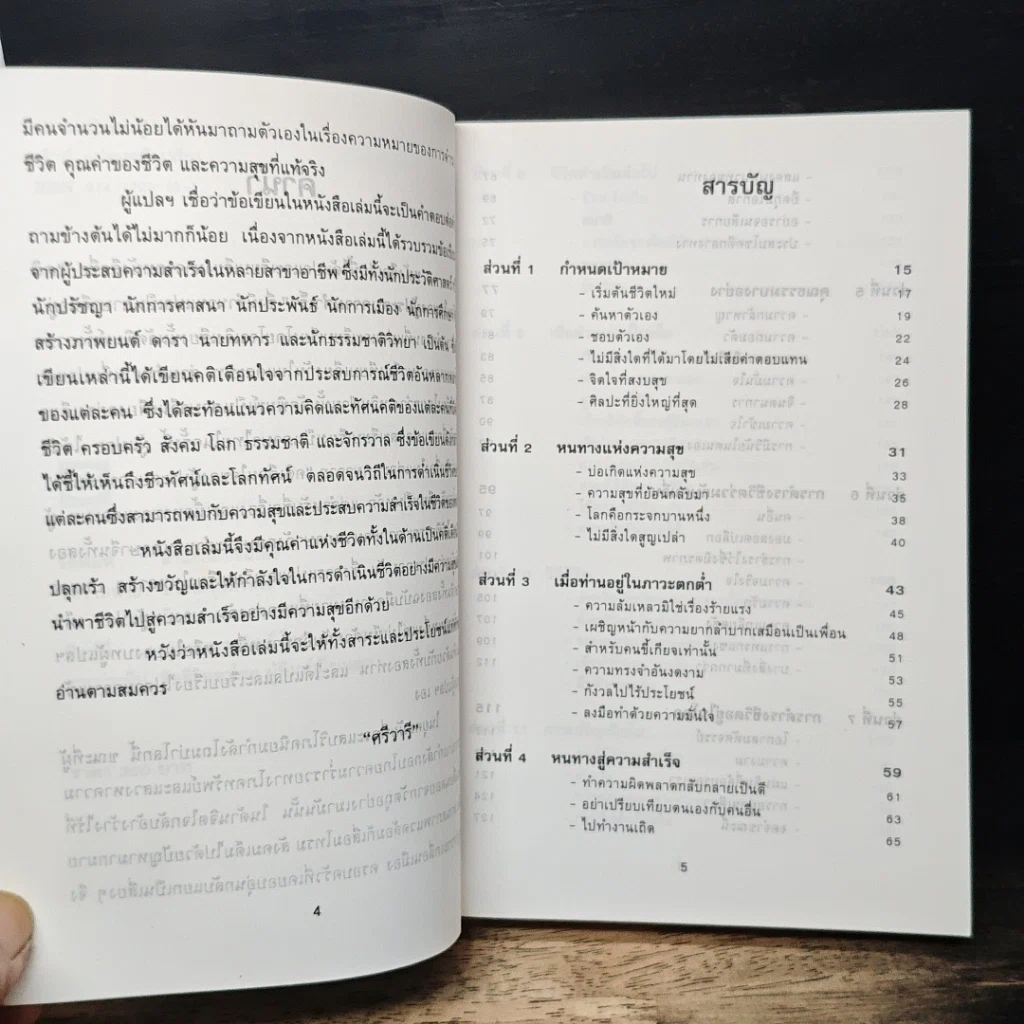 มีคนจำนวนไม่น้อยได้หันมาถามตัวเองในเรื่องความหมายของการ
ชีวิต คุณค่าของชีวิต และความสุขที่แท้จริง
ผู้แปลฯ เชื่อว่าข้อเขียนในหนังสือเล่มนี้จะเป็นคำตอบ
ถามข้างต้นได้ไม่มากก็น้อย เนื่องจากหนังสือเล่มนี้ได้รวบรวม
จากผู้ประสบความสำเร็จในหลายสาขาอาชีพ ซึ่งมีทั้งนักประวัติศาสตร์
นักปรัชญา นักการศาสนา นักประพันธ์ นักการเมือง นักการศึกษา
สร้างภาพยนต์ ดารา นายทหาร และนักธรรมชาติวิทยา เป็นต้น
เขียนเหล่านี้ได้เขียนคติเตือนใจจากประสบการณ์ชีวิตอัน
ของแต่ละคน ซึ่งได้สะท้อนแนวความคิดและทัศนคติของแต่ละคน
ชีวิต ครอบครัว สังคม โลก ธรรมชาติ และจักรวาล ซึ่งข้อเขียน
ได้ชี้ให้เห็นถึงชีวทัศน์และโลกทัศน์ ตลอดจนวิถีในการดำเนินชีวิต
แต่ละคนซึ่งสามารถพบกับความสุขและประสบความสำเร็จในชีวิต
หนังสือเล่มนี้จึงมีคุณค่าแห่งชีวิตทั้งในด้านเป็นคติ
ปลุกเร้า สร้างขวัญและให้กำลังใจในการดำเนินชีวิตอย่างมีความ
นำพาชีวิตไปสู่ความสำเร็จอย่างมีความสุขอีกด้วย
หวังว่าหนังสือเล่มนี้จะให้ทั้งสาระและประโยชน์
อ่านตามสมควร
"ศรีวารี"
4
สารบัญ
ส่วนที่ 1 กำหนดเป้าหมาย 15
- เริ่มต้นชีวิตใหม่ 17
- ค้นหาตัวเอง 19
- ชอบตัวเอง 22
- ไม่มีสิ่งใดที่ได้มาโดยไม่เสียค่าตอบแทน 24
- จิตใจที่สงบสุข 26
- ศิลปะที่ยิ่งใหญ่ที่สุด 28
ส่วนที่ 2 หนทางแห่งความสุข 31
- บ่อเกิดแห่งความสุข 33
- ความสุขที่ย้อนกลับมา 35
- โลกคือกระจกบานหนึ่ง 38
- ไม่มีสิ่งใดสูญเปล่า 40
ส่วนที่ 3 เมื่อท่านอยู่ในภาวะตกต่ำ 43
- ความล้มเหลวมิใช่เรื่องร้ายแรง 45
- เผชิญหน้ากับความยากลำบากเสมือนเป็นเพื่อน 48
- สำหรับคนขี้เกียจเท่านั้น 51
- ความทรงจำอันงดงาม 53
- กังวลไปไร้ประโยชน์ 55
- ลงมือทำด้วยความมั่นใจ 57
ส่วนที่ 4 หนทางสู่ความสำเร็จ 59
- ทำความผิดพลาดกลับกลายเป็นดี 61
- อย่าเปรียบเทียบตนเองกับคนอื่น 63
- ไปทำงานเถิด 65
5